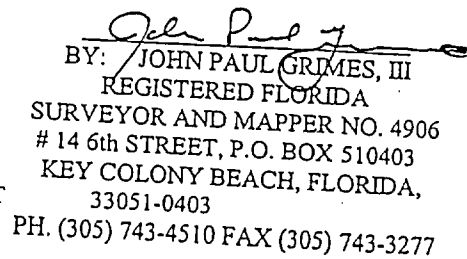 John Paul Grimes
BY: JOHN PAUL GRIMES, III
REGISTERED FLORIDA
SURVEYOR AND MAPPER NO. 4906
# 14 6th STREET, P.O. BOX 510403
KEY COLONY BEACH, FLORIDA,
33051-0403
PH. (305) 743-4510 FAX (305) 743-3277